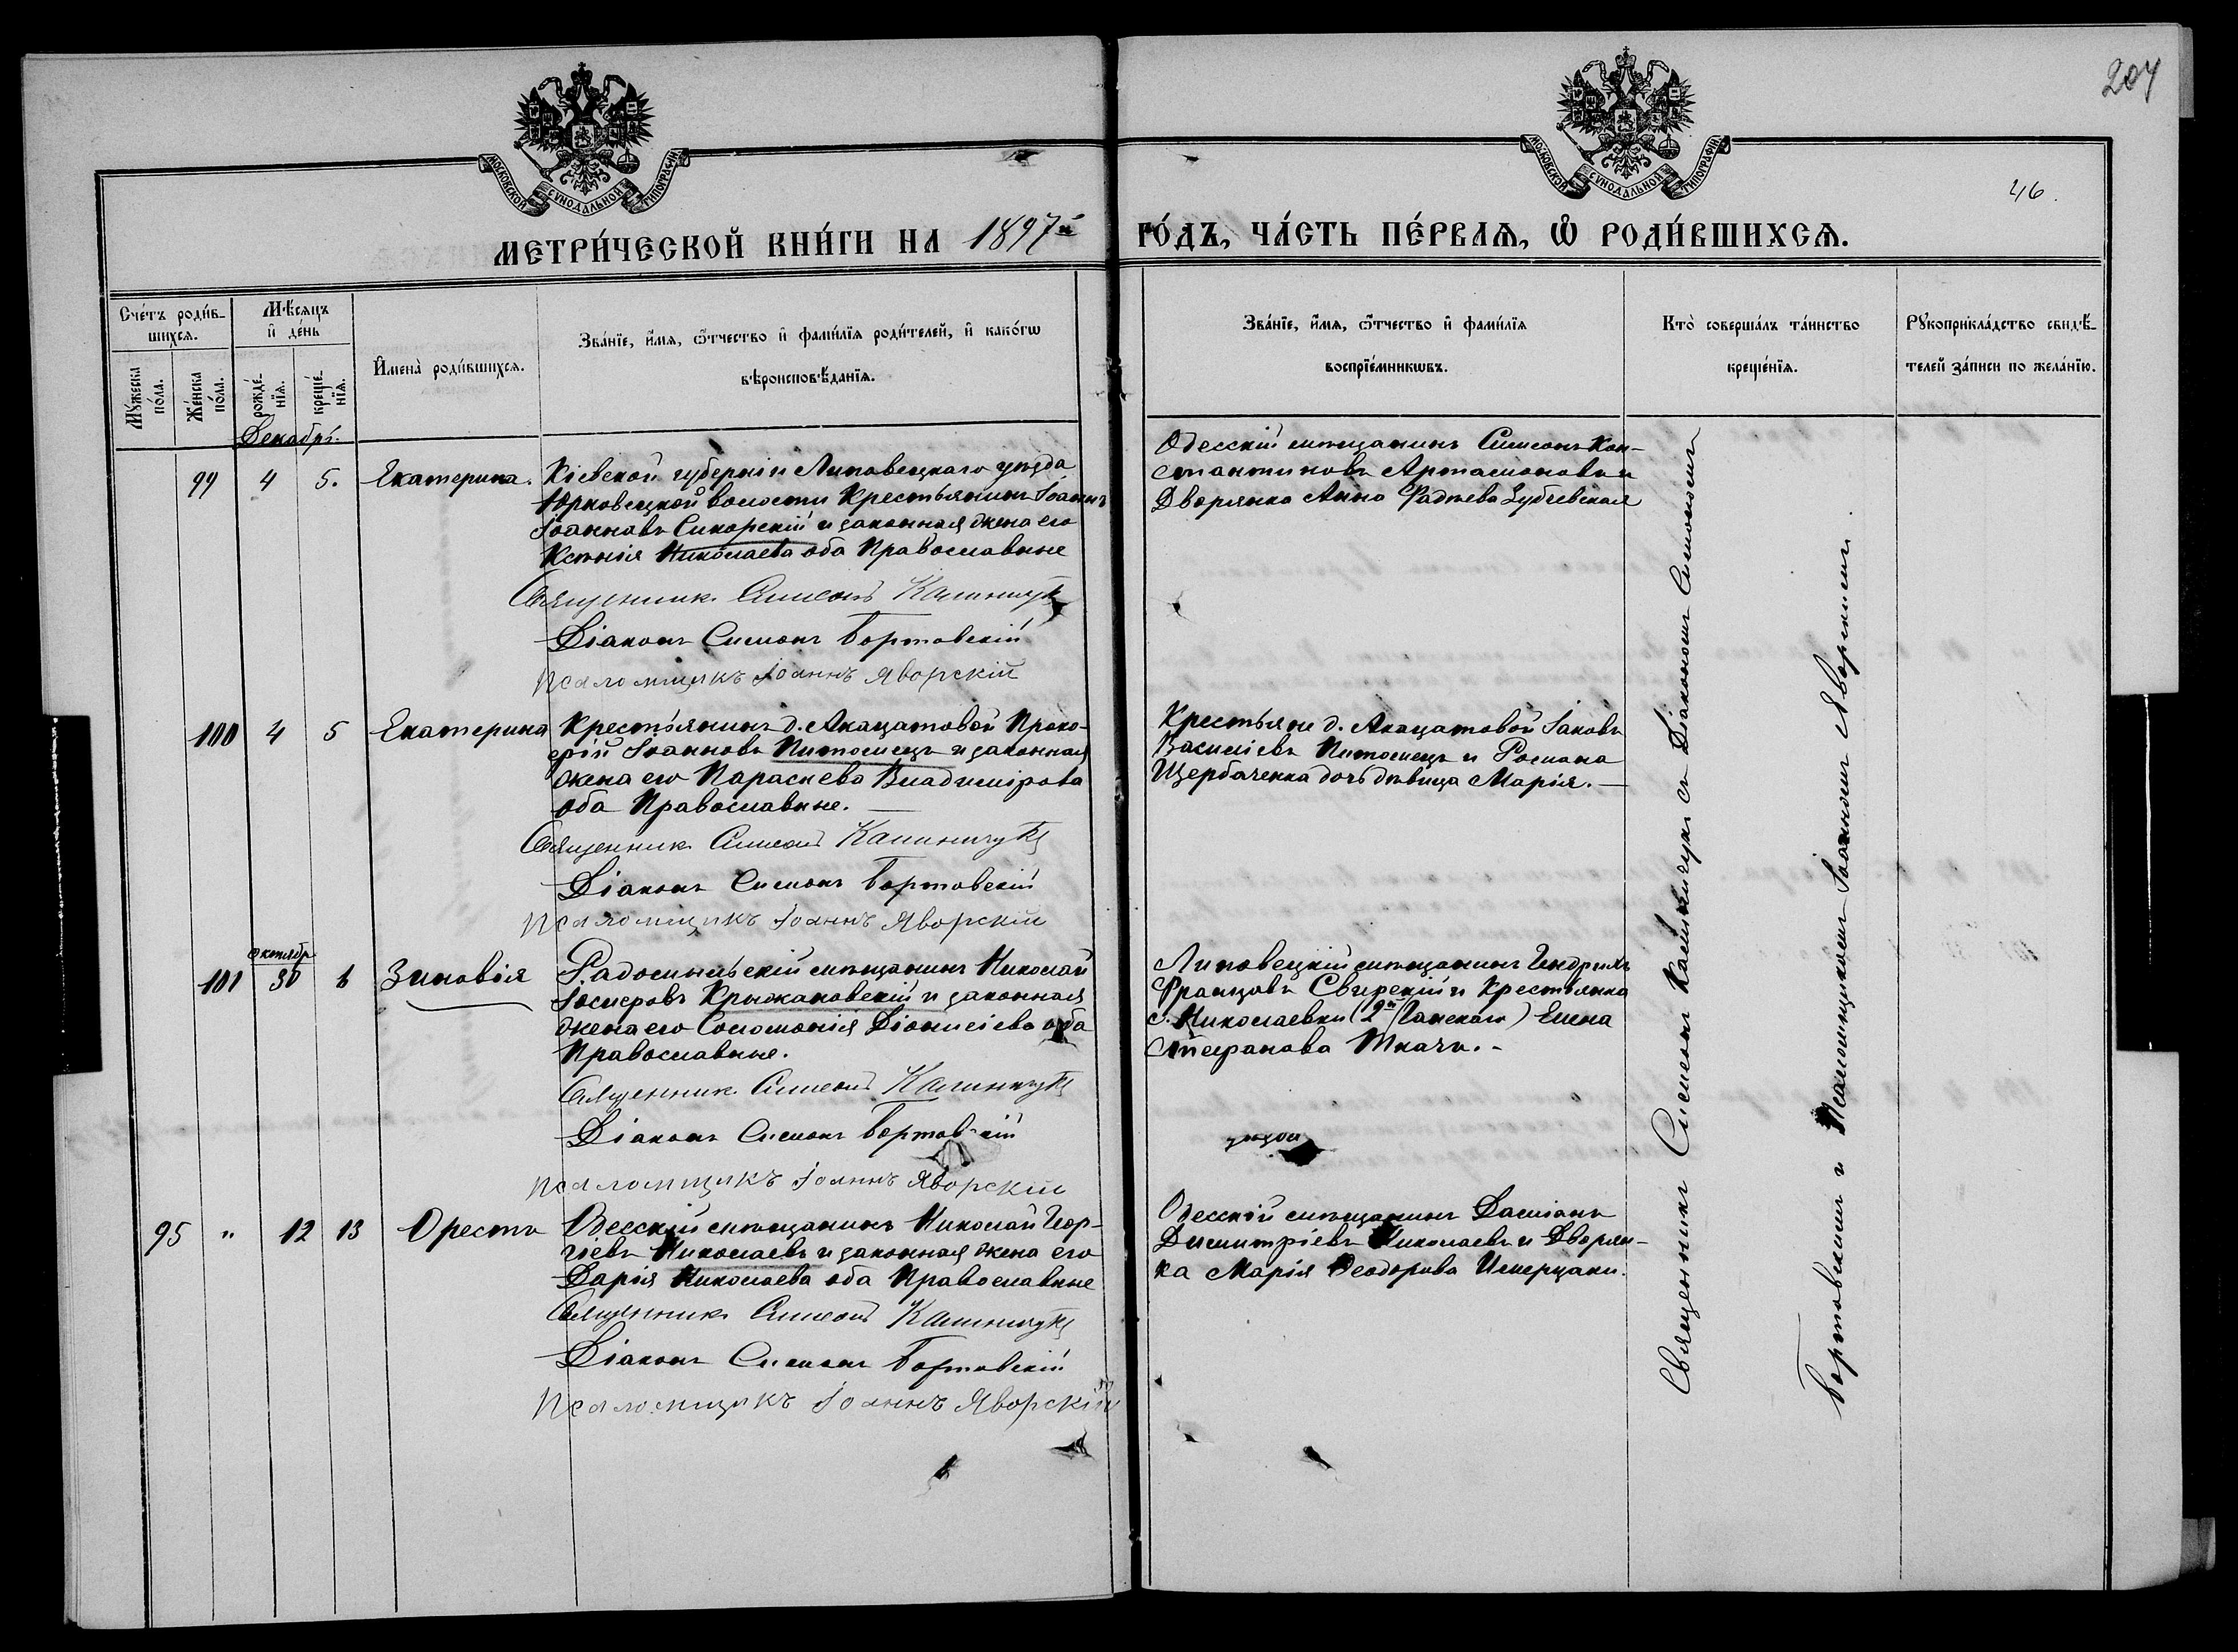 207
46.
МОСКОВСКОЙ СѴНОДАЛЬНОЙ ТИПОГРАФІИ
МОСКОВСКОЙ СѴНОДАЛЬНОЙ ТИПОГРАФІИ
МЕТРИ́ЧЕСКОЙ КНИ́ГИ НА 1897й ГО́ДЪ, ЧА́СТЬ ПЕ́РВАѦ, Ѡ РОДИ́ВШИХСѦ.
Сче́тъ роди́в-
шихсѧ.
Му́жеска по́ла.
Же́нска по́ла.
Мѣ́сѧцъ и҆ де́нь
рожде́-
нїѧ.
креще́-
нїѧ.
И҆мена̀ роди́вшихсѧ.
Зва́нїе, и҆́мѧ, ѻ҆́тчество и҆ фами́лїѧ роди́телей, и҆ како́гѡ
вѣроисповѣ́данїѧ.
Зва́нїе, и҆́мѧ, ѻ҆́тчество и҆ фами́лїѧ
воспрїе́мникѡвъ.
Кто̀ соверша́лъ та́инство
креще́нїѧ.
Рꙋкоприкла́дство свидѣ́-
телей за́писи по жела́нїю.
Декабрь.
99 4 5. Екатерина.
Кіевской губерніи Липовецкаго уѣзда
Юрковецкой волости Крестьянинъ Іоаннъ
Іоанновъ Сикорскій и законная жена его
Ксенія Николаева оба Православные
Священникъ Симеонъ Калинчукъ
Діаконъ Симонъ Бортовскій
Псаломщикъ Іоаннъ Яворскій
Одесскій мѣщанинъ Симеонъ Кон-
стантиновъ Артамоновъ и
Дворянка Анна Фадѣева Зубчевская
100 4 5 Екатерина
Крестьянинъ д. Акацатовой Проко-
фій Іоанновъ Питомецъ и законная
жена его Параскева Владимірова
оба Православные.
Священникъ Симеонъ Калинчукъ
Діаконъ Симонъ Бортовскій
Псаломщикъ Іоаннъ Яворскій
Крестьяне д. Акацатовой Іаковъ
Василіевъ Питомецъ и Романа
Щербаченка дочь дѣвица Марія.
октябр
101 30 6 Зиновія
Радомысльскій мѣщанинъ Николай
Іосифовъ Крыжановскій и законная
жена его Соломонія Діонисіева оба
Православные.
Священникъ Симеонъ Калинчукъ
Діаконъ Симонъ Бортовскій
Псаломщикъ Іоаннъ Яворскій
Липовецкій мѣщанинъ Гендрихъ
Францовъ Свирскій и Крестьянка
с. Николаевки (2й Ганскаго) Елена
Стефанова Ткачъ.
95 " 12 13 Орестъ
Одесскій мѣщанинъ Николай Геор-
гіевъ Николаевъ и законная жена его
Дарія Николаева оба Православные
Священникъ Симеонъ Калинчукъ
Діаконъ Симонъ Бортовскій
Псаломщикъ Іоаннъ Яворскій
Одесскій мѣщанинъ Даміанъ
Димитріевъ Николаевъ и Дворян-
ка Марія Ѳеодорова
Священникъ Симеонъ Калинчукъ съ Діакономъ Симономъ
Бортовскимъ и Псаломщикомъ Іоанномъ Яворскимъ.